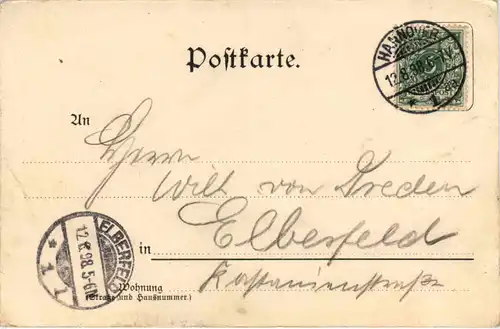 Postkarte.
HANNOVER
12.8.98.5-
* 1
An
Herrn
Wilh. von Dreden
Elberfeld
in
Kastanienstraße
Wohnung
(Straße und Hausnummer.)
ELBERFELD
12.8.98.5-6N
* 1